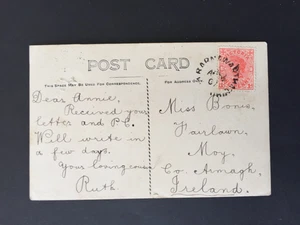 POST CARD
This Space May Be Used For Correspondence.
The Address Only.
Dear Annie,
Received your
letter and P.C.
Will write in
a few days.
Your loving cousin
Ruth
Miss Bonis,
Fairlawn,
Moy,
Co. Armagh,
Ireland.